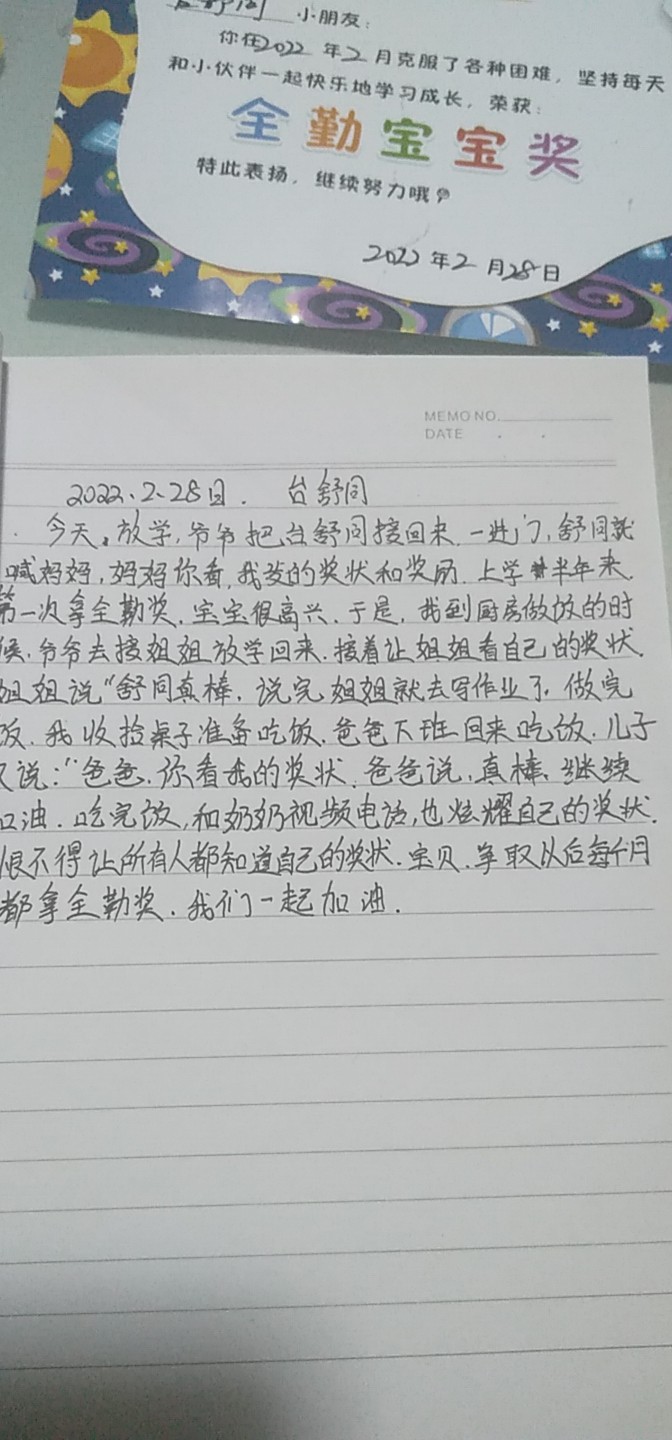 台舒同 小朋友：
你在2022 年2月克服了各种困难，坚持每天
和小伙伴一起快乐地学习成长，荣获：
全勤宝宝奖
特此表扬，继续努力哦
2022年2月28日
MEMO NO.
DATE . .
2022.2.28日. 台舒同
今天.放学,爷爷把台舒同接回来.一进门,舒同就
喊妈妈,妈妈你看.我发的奖状和奖励.上学半年来.
第一次拿全勤奖.宝宝很高兴.于是,我到厨房做饭的时
候.爷爷去接姐姐放学回来.接着让姐姐看自己的奖状.
姐姐说“舒同真棒.说完姐姐就去写作业了.做完
饭.我收捡桌子准备吃饭.爸爸下班回来吃饭.儿子
又说：“爸爸.你看我的奖状.爸爸说,真棒.继续
加油.吃完饭,和奶奶视频电话,也炫耀自己的奖状.
恨不得让所有人都知道自己的奖状.宝贝.争取以后每个月
都拿全勤奖.我们一起加油.